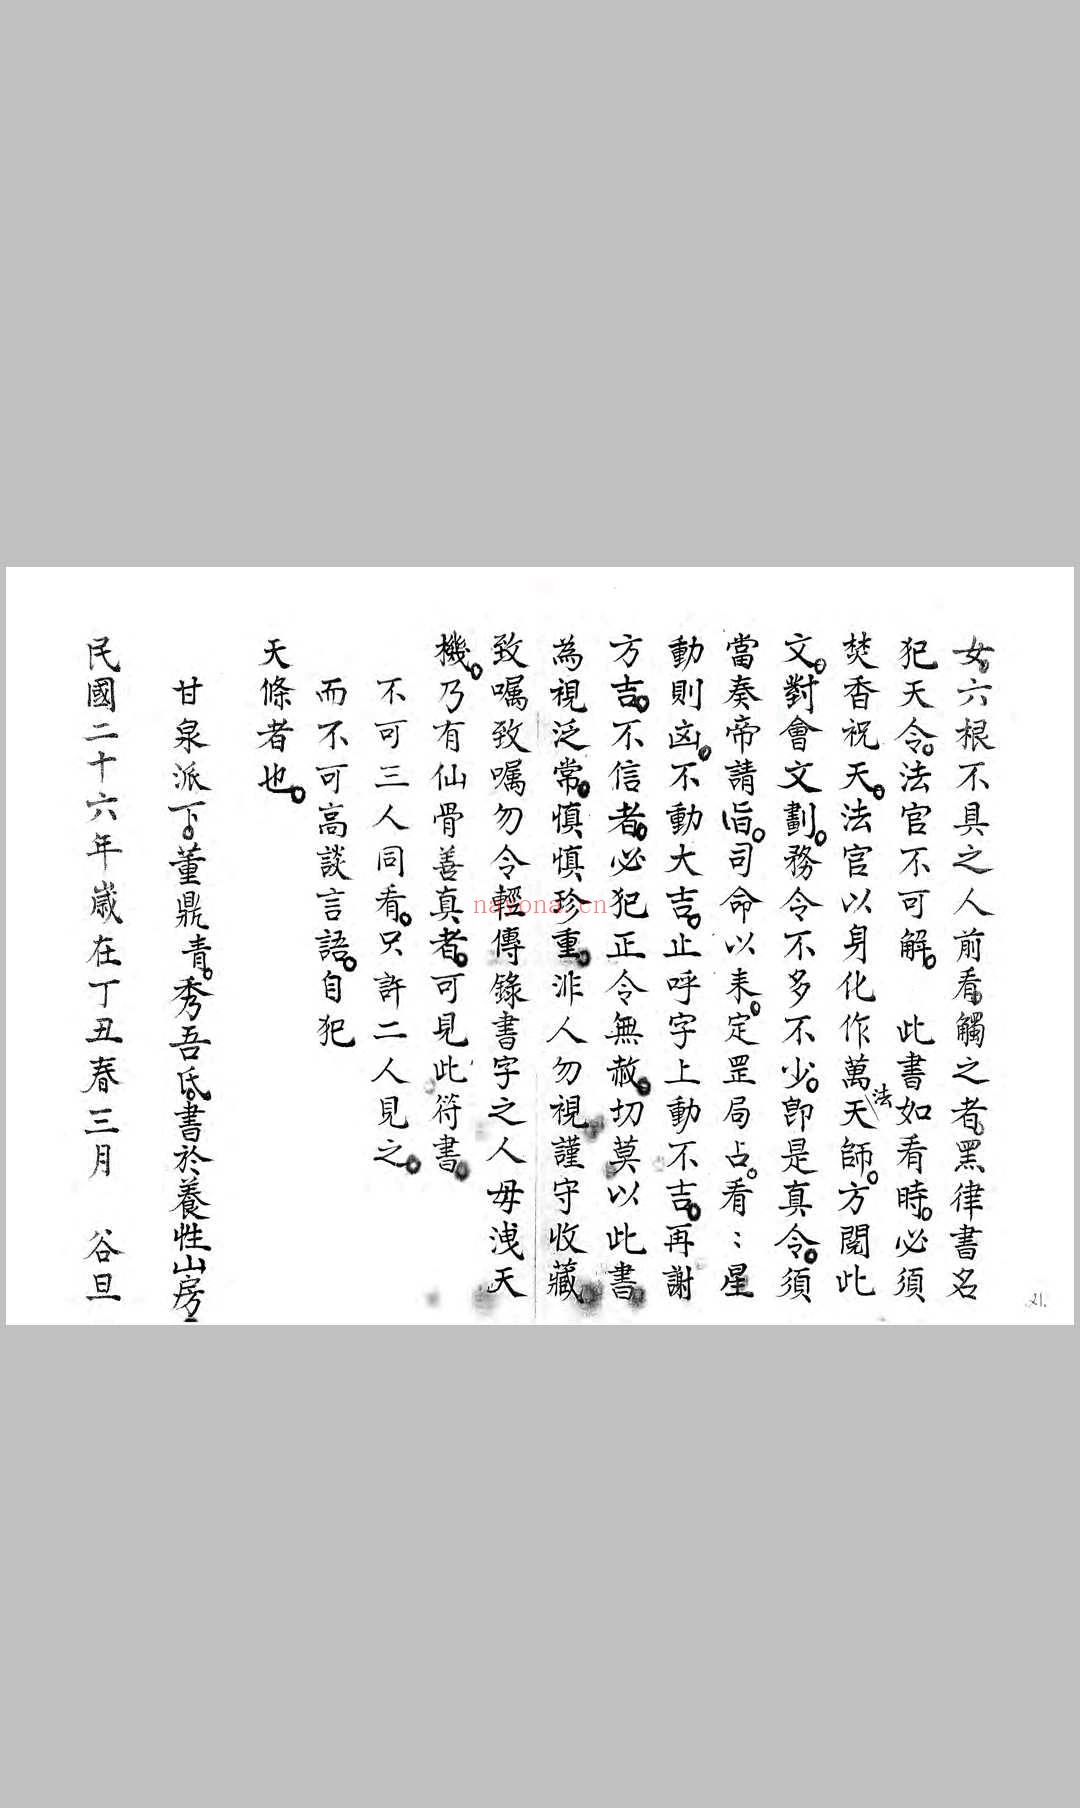 女。六根不具之人前看。觸之者。黑律書名
犯天令。法官不可解。 此書如看時。必須
焚香祝天。法官以身化作萬天法師。方閱此
文。對會文劃。務令不多不少。即是真令。須
當奏帝請旨。司命以来。定罡局占。看：星
動則凶。不動大吉。止呼字上動不吉。再謝
方吉。不信者。必犯正令無赦。切莫以此書
為視泛常。慎慎珍重。非人勿視謹守收藏
致嘱致嘱勿令輕傳錄書字之人毋洩天
機。乃有仙骨善真者。可見此符書。
不可三人同看。只許二人見之。
而不可高談言語。自犯
天條者也。
甘泉派下。董鼎青。秀吾氏。書於養性山房
民國二十六年歲在丁丑春三月 谷旦
21.
nayona.cn